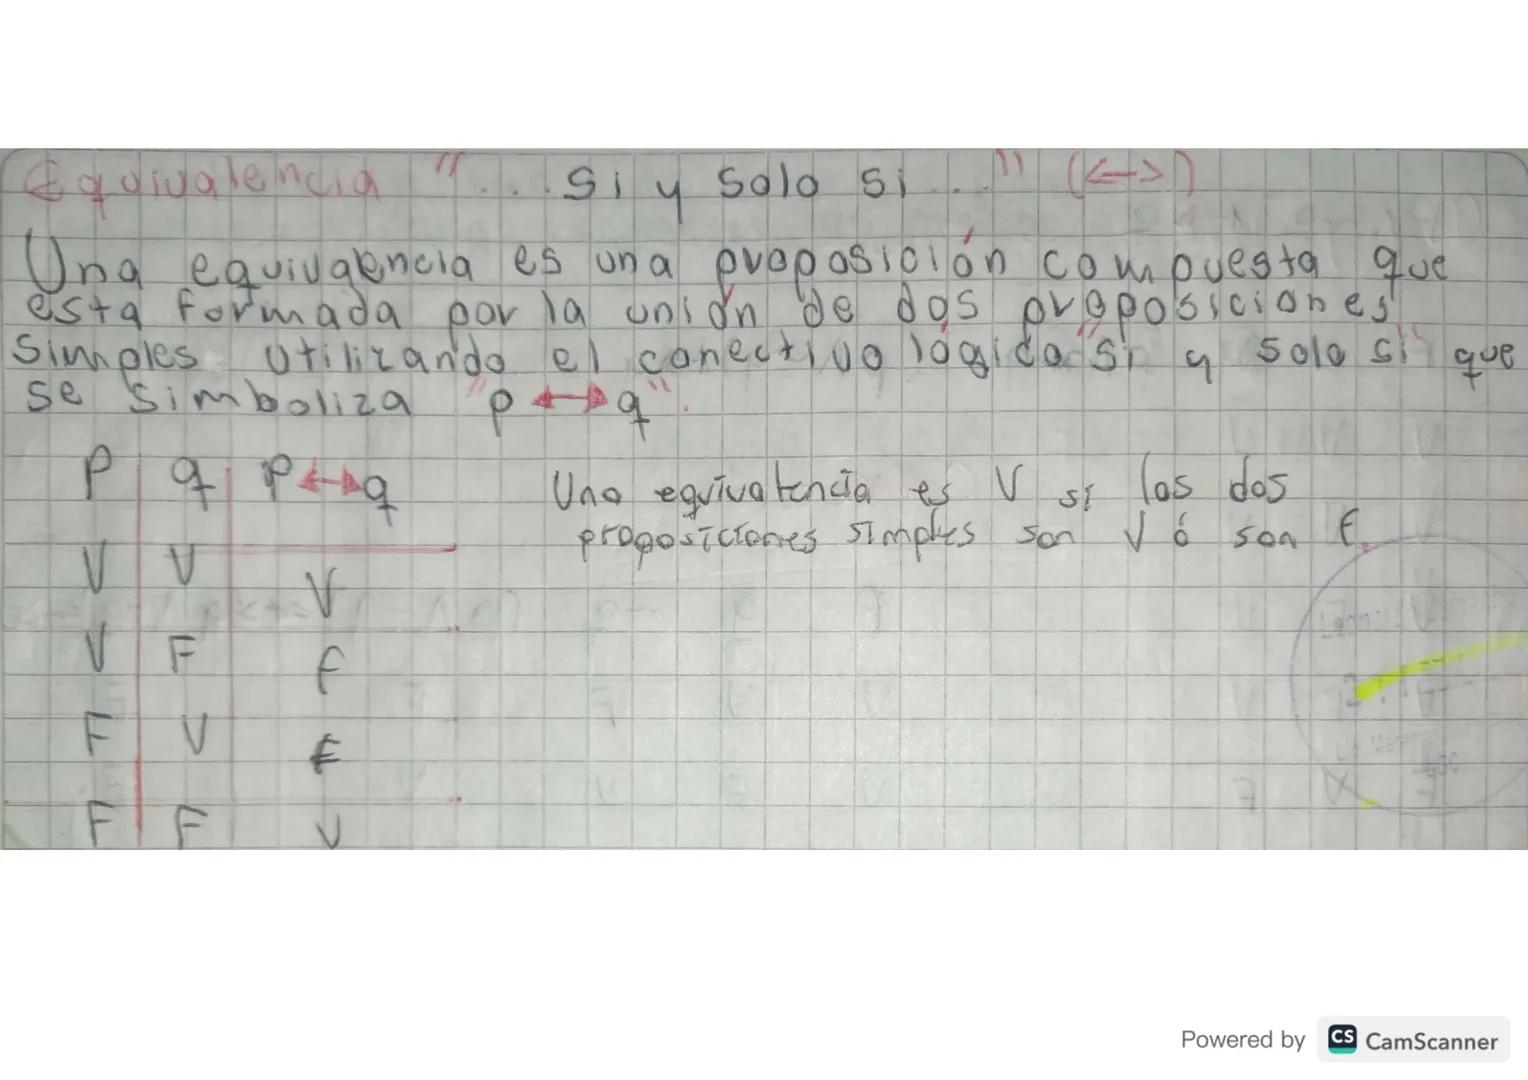 Equivalencia "... Si y Solo Si ..." (<->)
Una equivalencia es una proposición compuesta que
esta formada por la unión de dos proposiciones
simples utilizando el conectivo lógico "si y solo si" que
se simboliza "p ↔ q".
P q P↔q
Una equivalencia es V si las dos
proposiciones simples son V ó son F.
V V V
V F F
F V F
F F V
Powered by CS CamScanner